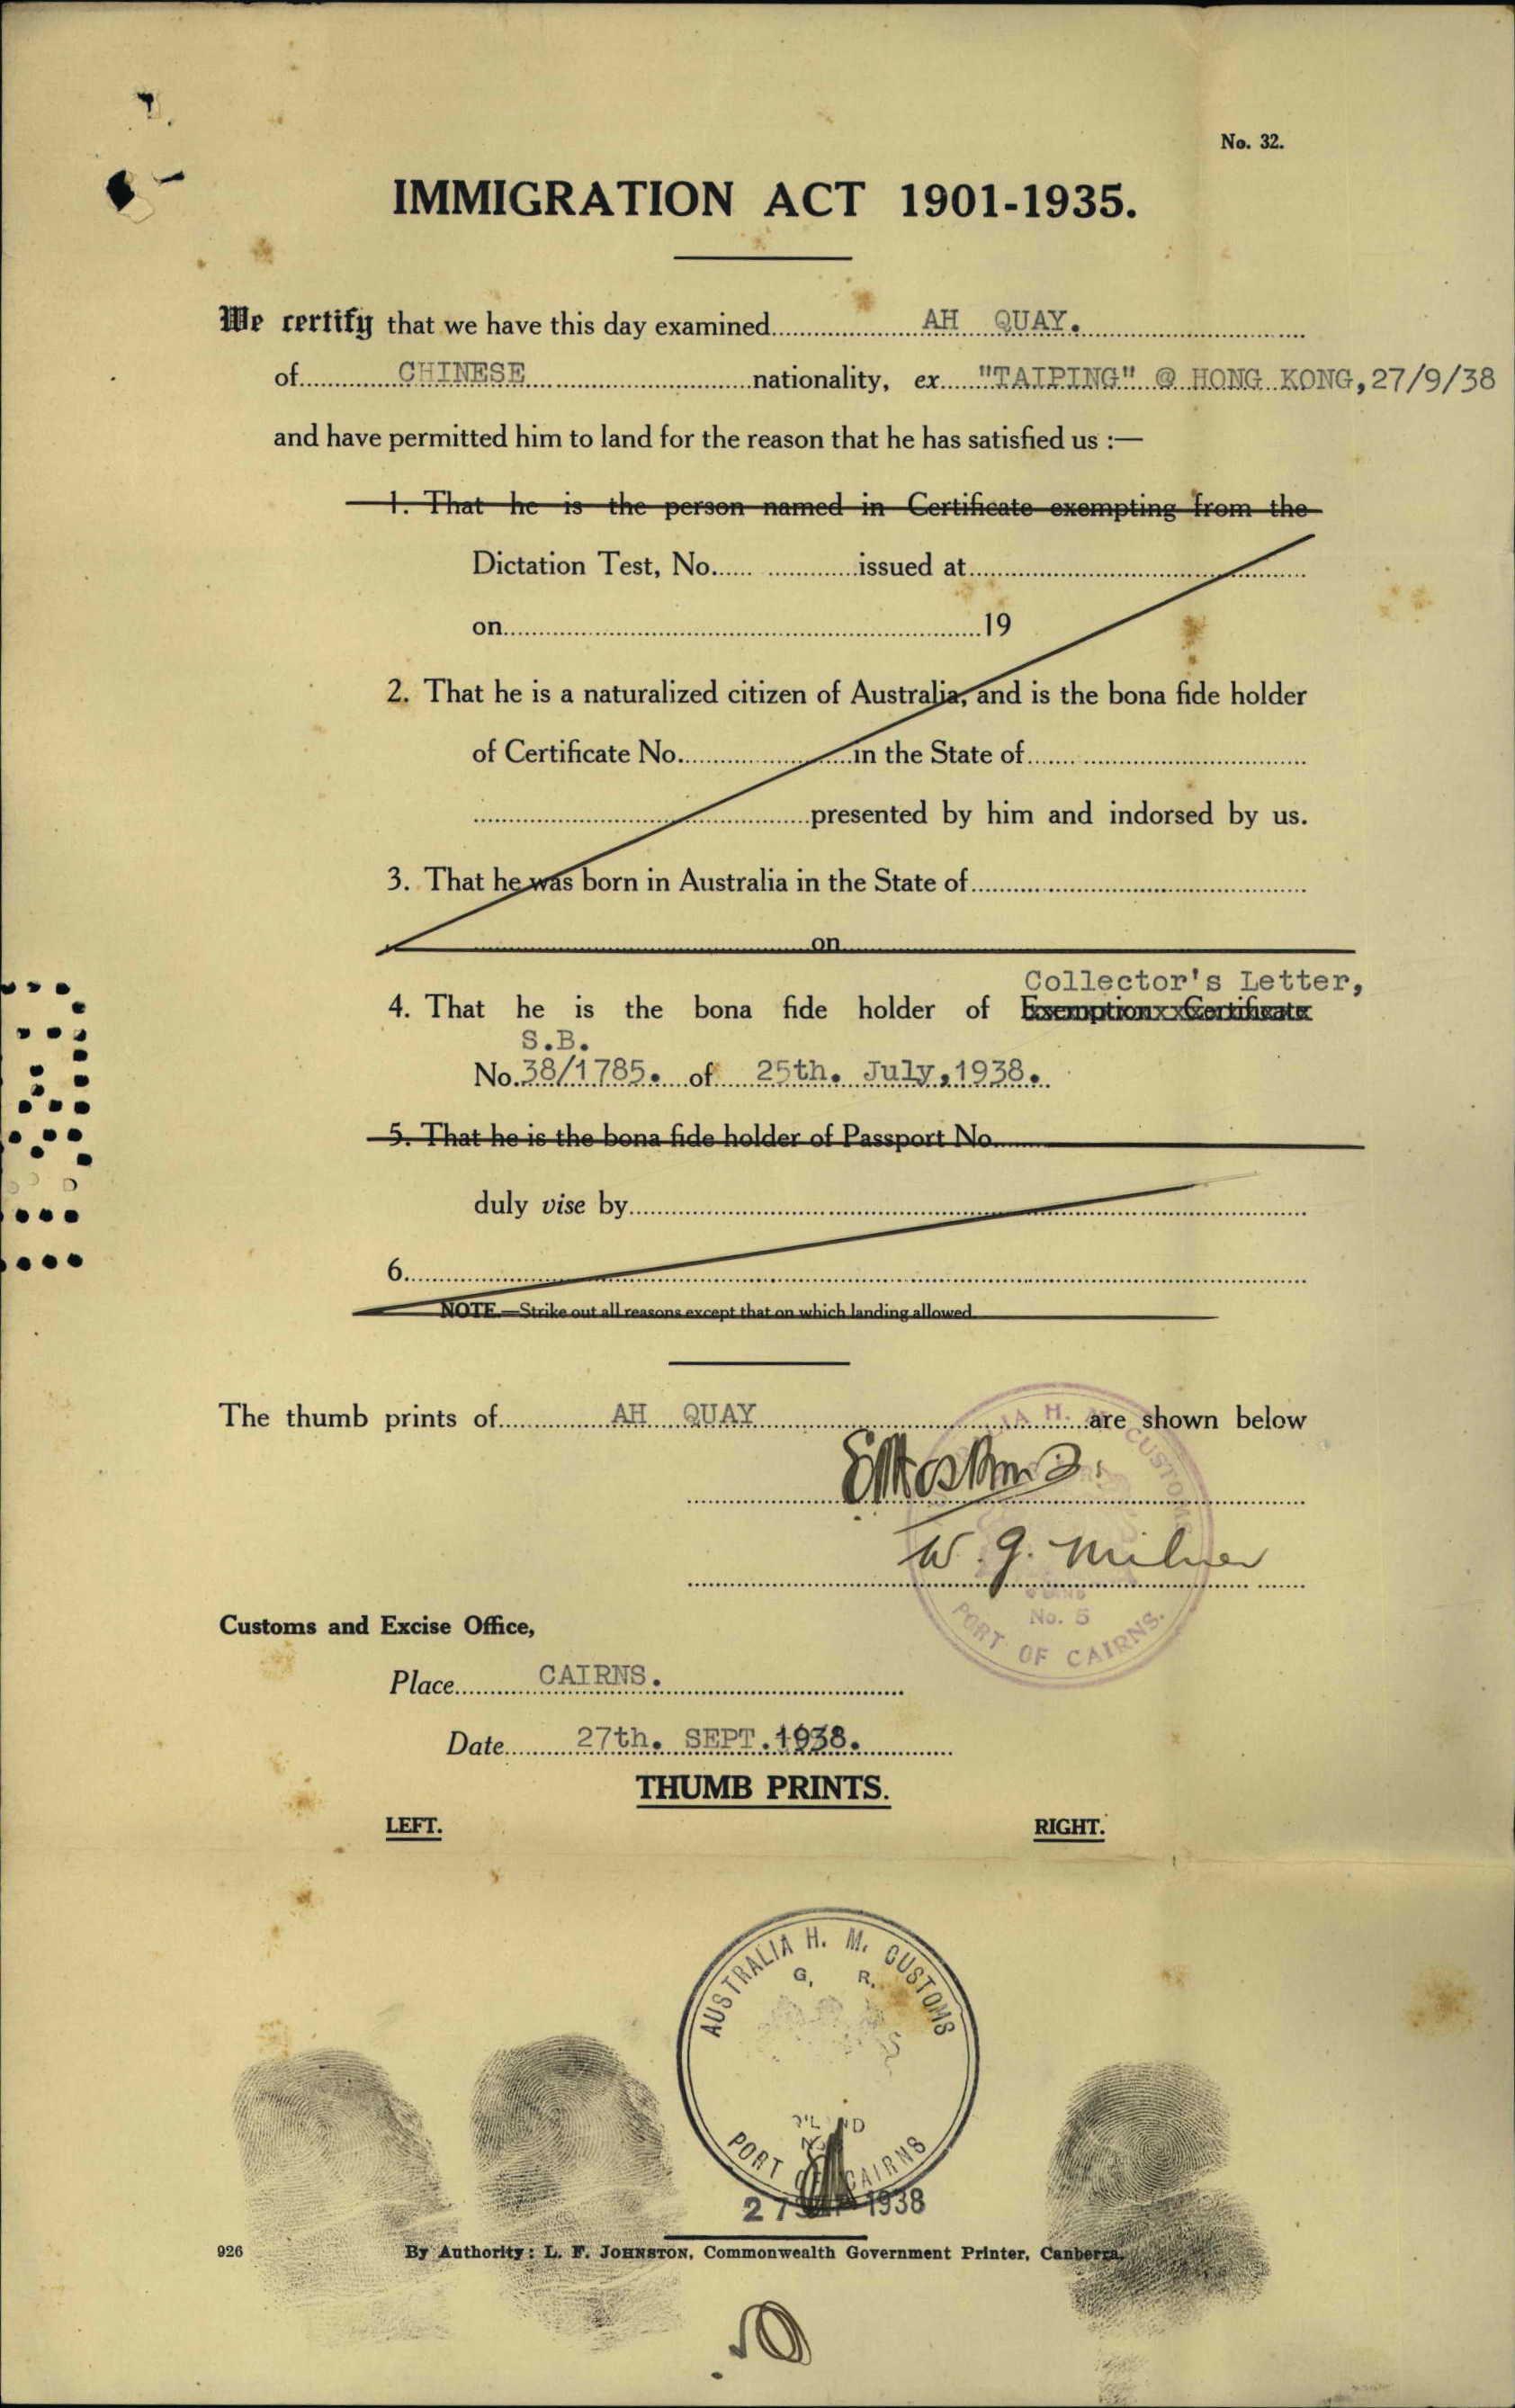 No. 32.
IMMIGRATION ACT 1901-1935.
We certify that we have this day examined AH QUAY.
of CHINESE nationality, ex "TAIPING" @ HONG KONG, 27/9/38
and have permitted him to land for the reason that he has satisfied us :—
1. That he is the person named in Certificate exempting from the
Dictation Test, No. issued at
on 19
2. That he is a naturalized citizen of Australia, and is the bona fide holder
of Certificate No. in the State of
presented by him and indorsed by us.
3. That he was born in Australia in the State of
on
Collector's Letter,
4. That he is the bona fide holder of Exemption Certificate
S.B.
No. 38/1785. of 25th. July, 1938.
5. That he is the bona fide holder of Passport No.
duly vise by
6.
NOTE.—Strike out all reasons except that on which landing allowed.
The thumb prints of AH QUAY are shown below
W. G. Milner
H. CUSTOMS
No. 5
PORT OF CAIRNS.
Customs and Excise Office,
Place CAIRNS.
Date 27th. SEPT. 1938.
THUMB PRINTS.
LEFT. RIGHT.
AUSTRALIA H. M. CUSTOMS
G. R.
PORT OF CAIRNS
27 SEP 1938
926 By Authority: L. F. JOHNSTON, Commonwealth Government Printer, Canberra.